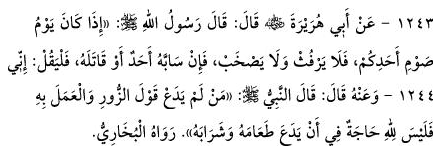 ١٢٤٣ - عَنْ أَبِي هُرَيْرَةَ ﵁ قَالَ: قَالَ رَسُولُ اللهِ ﷺ: «إِذَا كَانَ يَوْمُ
صَوْمِ أَحَدِكُمْ، فَلَا يَرْفُثْ وَلَا يَصْخَبْ، فَإِنْ سَابَّهُ أَحَدٌ أَوْ قَاتَلَهُ، فَلْيَقُلْ: إِنِّي
١٢٤٤ - وَعَنْهُ قَالَ: قَالَ النَّبِيُّ ﷺ: «مَنْ لَمْ يَدَعْ قَوْلَ الزُّورِ وَالْعَمَلَ بِهِ
فَلَيْسَ لِلهِ حَاجَةٌ فِي أَنْ يَدَعَ طَعَامَهُ وَشَرَابَهُ». رَوَاهُ الْبُخَارِيُّ.